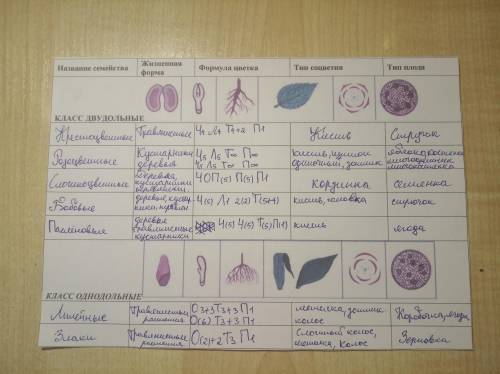 Название семейства Жизненная форма Формула цветка Тип соцветия Тип плода
КЛАСС ДВУДОЛЬНЫЕ
Крестоцветные Травянистые Ч4 Л4 Т4+2 П1 Кисть Стручок
Розоцветные Кустарники деревья Ч5 Л5 Т∞ П∞
Ч5 Л5 Т∞ П1
Сложноцветные деревья, кустарники Корзинка семянка
Бобовые деревья, Ч(5) Л1 2(2) Т(5+1) кисть, головка стручок
Паслёновые деревья травянистые кустарники Ч(5) Ч(5) Т(5) П1) кисть ягода
КЛАСС ОДНОДОЛЬНЫЕ
Лилейные Травянистые растения О3+3 Т3+3 П1
О(6) Т3+3 П1 метелка, колос Коробочка, ягода
Злаки Травянистые растения О(2)+2 Т3 П1 Сложный колос, колос Зерновка